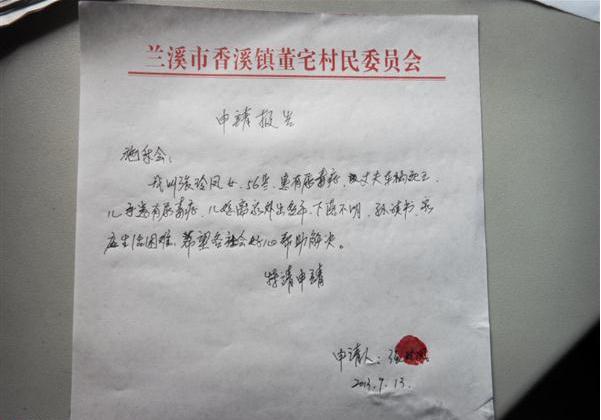 兰溪市香溪镇董宅村民委员会
申请报告
施乐会:
我叫张玲凤女.56岁.患有尿毒症.丈夫车祸死亡.
儿子患有尿毒症.儿媳离家外出多年.下落不明.孙读书.家
庭生活困难.希望各社会好心帮助解决。
特请申请
申请人:张
2013.9.13.